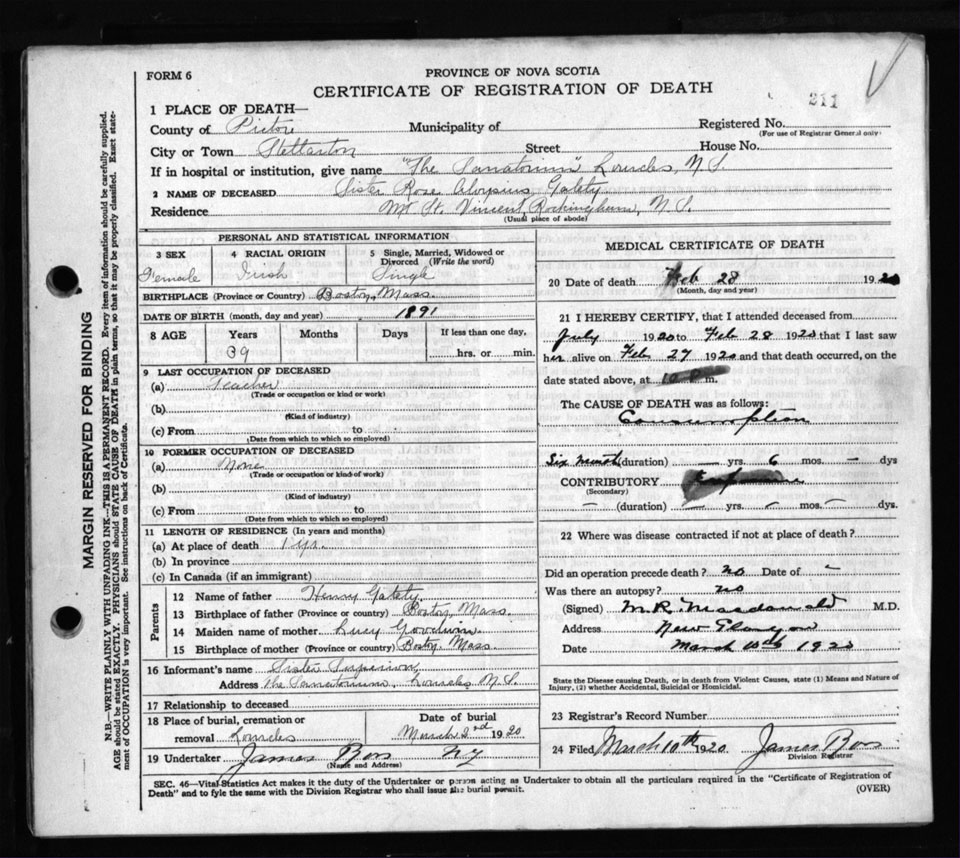 FORM 6
PROVINCE OF NOVA SCOTIA
CERTIFICATE OF REGISTRATION OF DEATH
211
1 PLACE OF DEATH—
County of Pictou Municipality of Registered No.
(For use of Registrar General only)
City or Town Stellarton Street House No.
If in hospital or institution, give name "The Sanatorium" Lourdes, N.S.
2 NAME OF DECEASED Sister Rose Aloysius Gately
Residence Mt St. Vincent, Rockingham, N.S.
(Usual place of abode)
PERSONAL AND STATISTICAL INFORMATION
3 SEX 4 RACIAL ORIGIN 5 Single, Married, Widowed or Divorced (Write the word)
Female Irish Single
BIRTHPLACE (Province or Country) Boston, Mass.
DATE OF BIRTH (month, day and year) 1891
8 AGE Years Months Days If less than one day,
39 hrs. or min.
9 LAST OCCUPATION OF DECEASED
(a) Teacher
(Trade or occupation or kind or work)
(b)
(Kind of industry)
(c) From to
(Date from which to which so employed)
10 FORMER OCCUPATION OF DECEASED
(a) None
(Trade or occupation or kind of work)
(b)
(Kind of industry)
(c) From to
(Date from which to which so employed)
11 LENGTH OF RESIDENCE (In years and months)
(a) At place of death 1 yr.
(b) In province
(c) In Canada (if an immigrant)
Parents
12 Name of father Henry Gately
13 Birthplace of father (Province or country) Boston, Mass.
14 Maiden name of mother Lucy Goodwin
15 Birthplace of mother (Province or country) Boston, Mass.
16 Informant's name Sister Superior
Address The Sanatorium, Lourdes N.S.
17 Relationship to deceased
18 Place of burial, cremation or removal Lourdes
Date of burial March 2nd 1920
19 Undertaker James Ross
(Name and Address)
MEDICAL CERTIFICATE OF DEATH
20 Date of death Feb 28 1920
(Month, day and year)
21 I HEREBY CERTIFY, that I attended deceased from
July 1920 to Feb 28 1920 that I last saw
her alive on Feb 27 1920 and that death occurred, on the
date stated above, at m.
The CAUSE OF DEATH was as follows:
Consumption
Six months (duration) — yrs. 6 mos. — dys
CONTRIBUTORY
(Secondary)
— (duration) — yrs. — mos. — dys.
22 Where was disease contracted if not at place of death?
Did an operation precede death? no Date of —
Was there an autopsy? no
(Signed) M.R. Macdonald M.D.
Address New Glasgow
Date March 1920
State the Disease causing Death, or in death from Violent Causes, state (1) Means and Nature of
Injury, (2) whether Accidental, Suicidal or Homicidal.
23 Registrar's Record Number
24 Filed March 10th 1920 James Ross
Division Registrar
SEC. 46—Vital Statistics Act makes it the duty of the Undertaker or person acting as Undertaker to obtain all the particulars required in the "Certificate of Registration of
Death" and to fyle the same with the Division Registrar who shall issue the burial permit.
(OVER)
MARGIN RESERVED FOR BINDING
N.B.—WRITE PLAINLY WITH UNFADING INK—THIS IS A PERMANENT RECORD. Every item of information should be carefully supplied.
AGE should be stated EXACTLY. PHYSICIANS should STATE CAUSE OF DEATH in plain terms, so that it may be properly classified. Exact statement of OCCUPATION is very important. See instructions on back of Certificate.